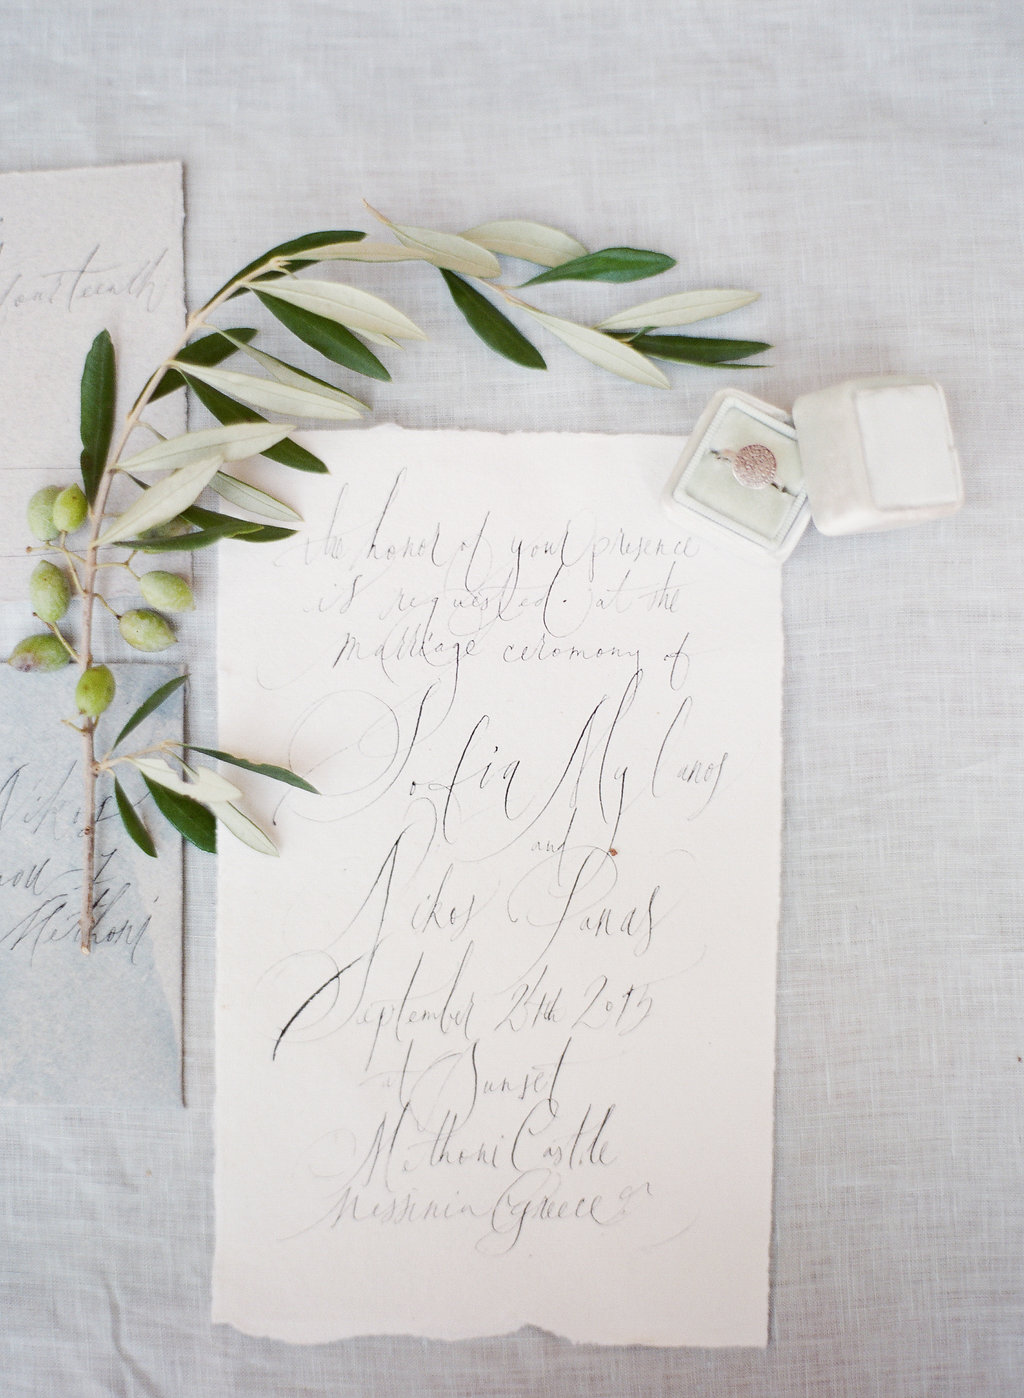 fourteenth
Nikos
Methoni
the honor of your presence
is requested. at the
marriage ceromony of
Sofia Mylanos
and
Nikos Panas
September 24th 2015
at Sunset
Methoni Castle
Messinia Greece